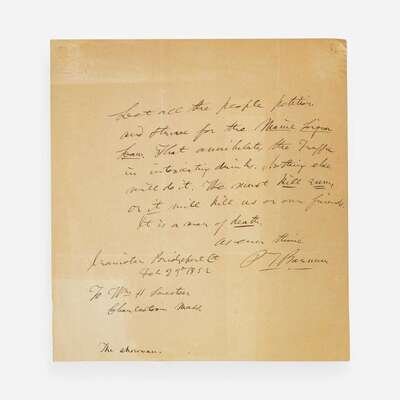 Let all the people petition
and strive for the Maine Liquor
Law. That annihilates the Traffic
in intoxicating drinks. Nothing else
will do it. We must kill rum,
or it will kill us or our friends
It is a war of death.
As ever thine
P T Barnum
Iranistan, Bridgeport Ct
Feb 29th 1852
To Wm H
Charlestown Mass.
The showman.